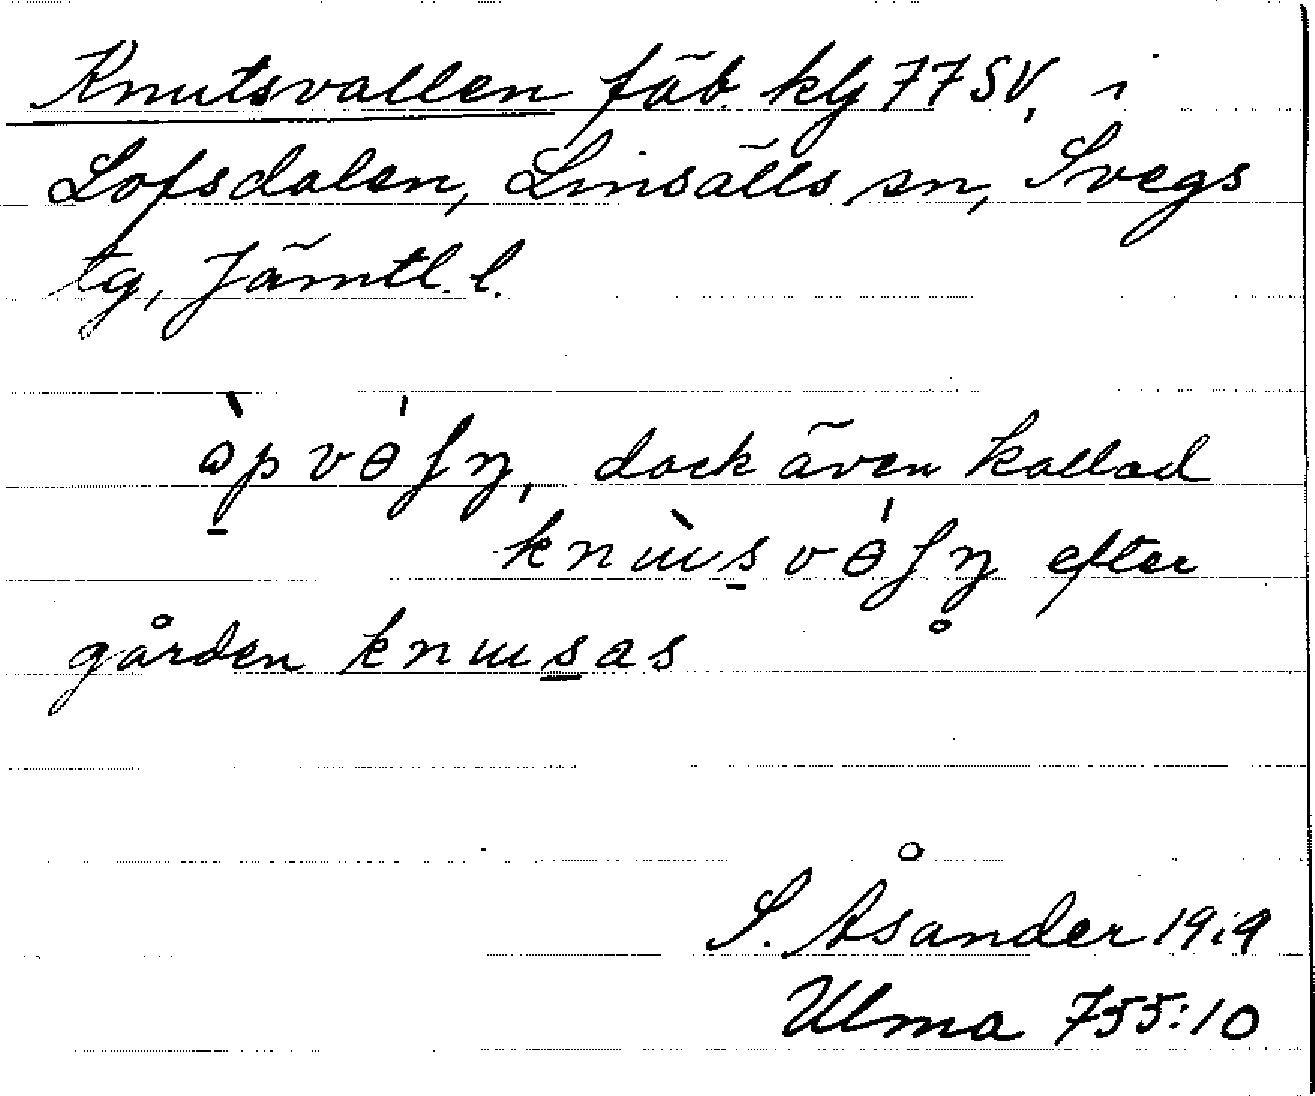 Knutsvallen fäb. klj 77 SV, i
Lofsdalen, Linsälls sn, Svegs
tg, Jämtl. l.
dock även kallad
efter
gården
S. Åsander 1919
Ulma 755:10